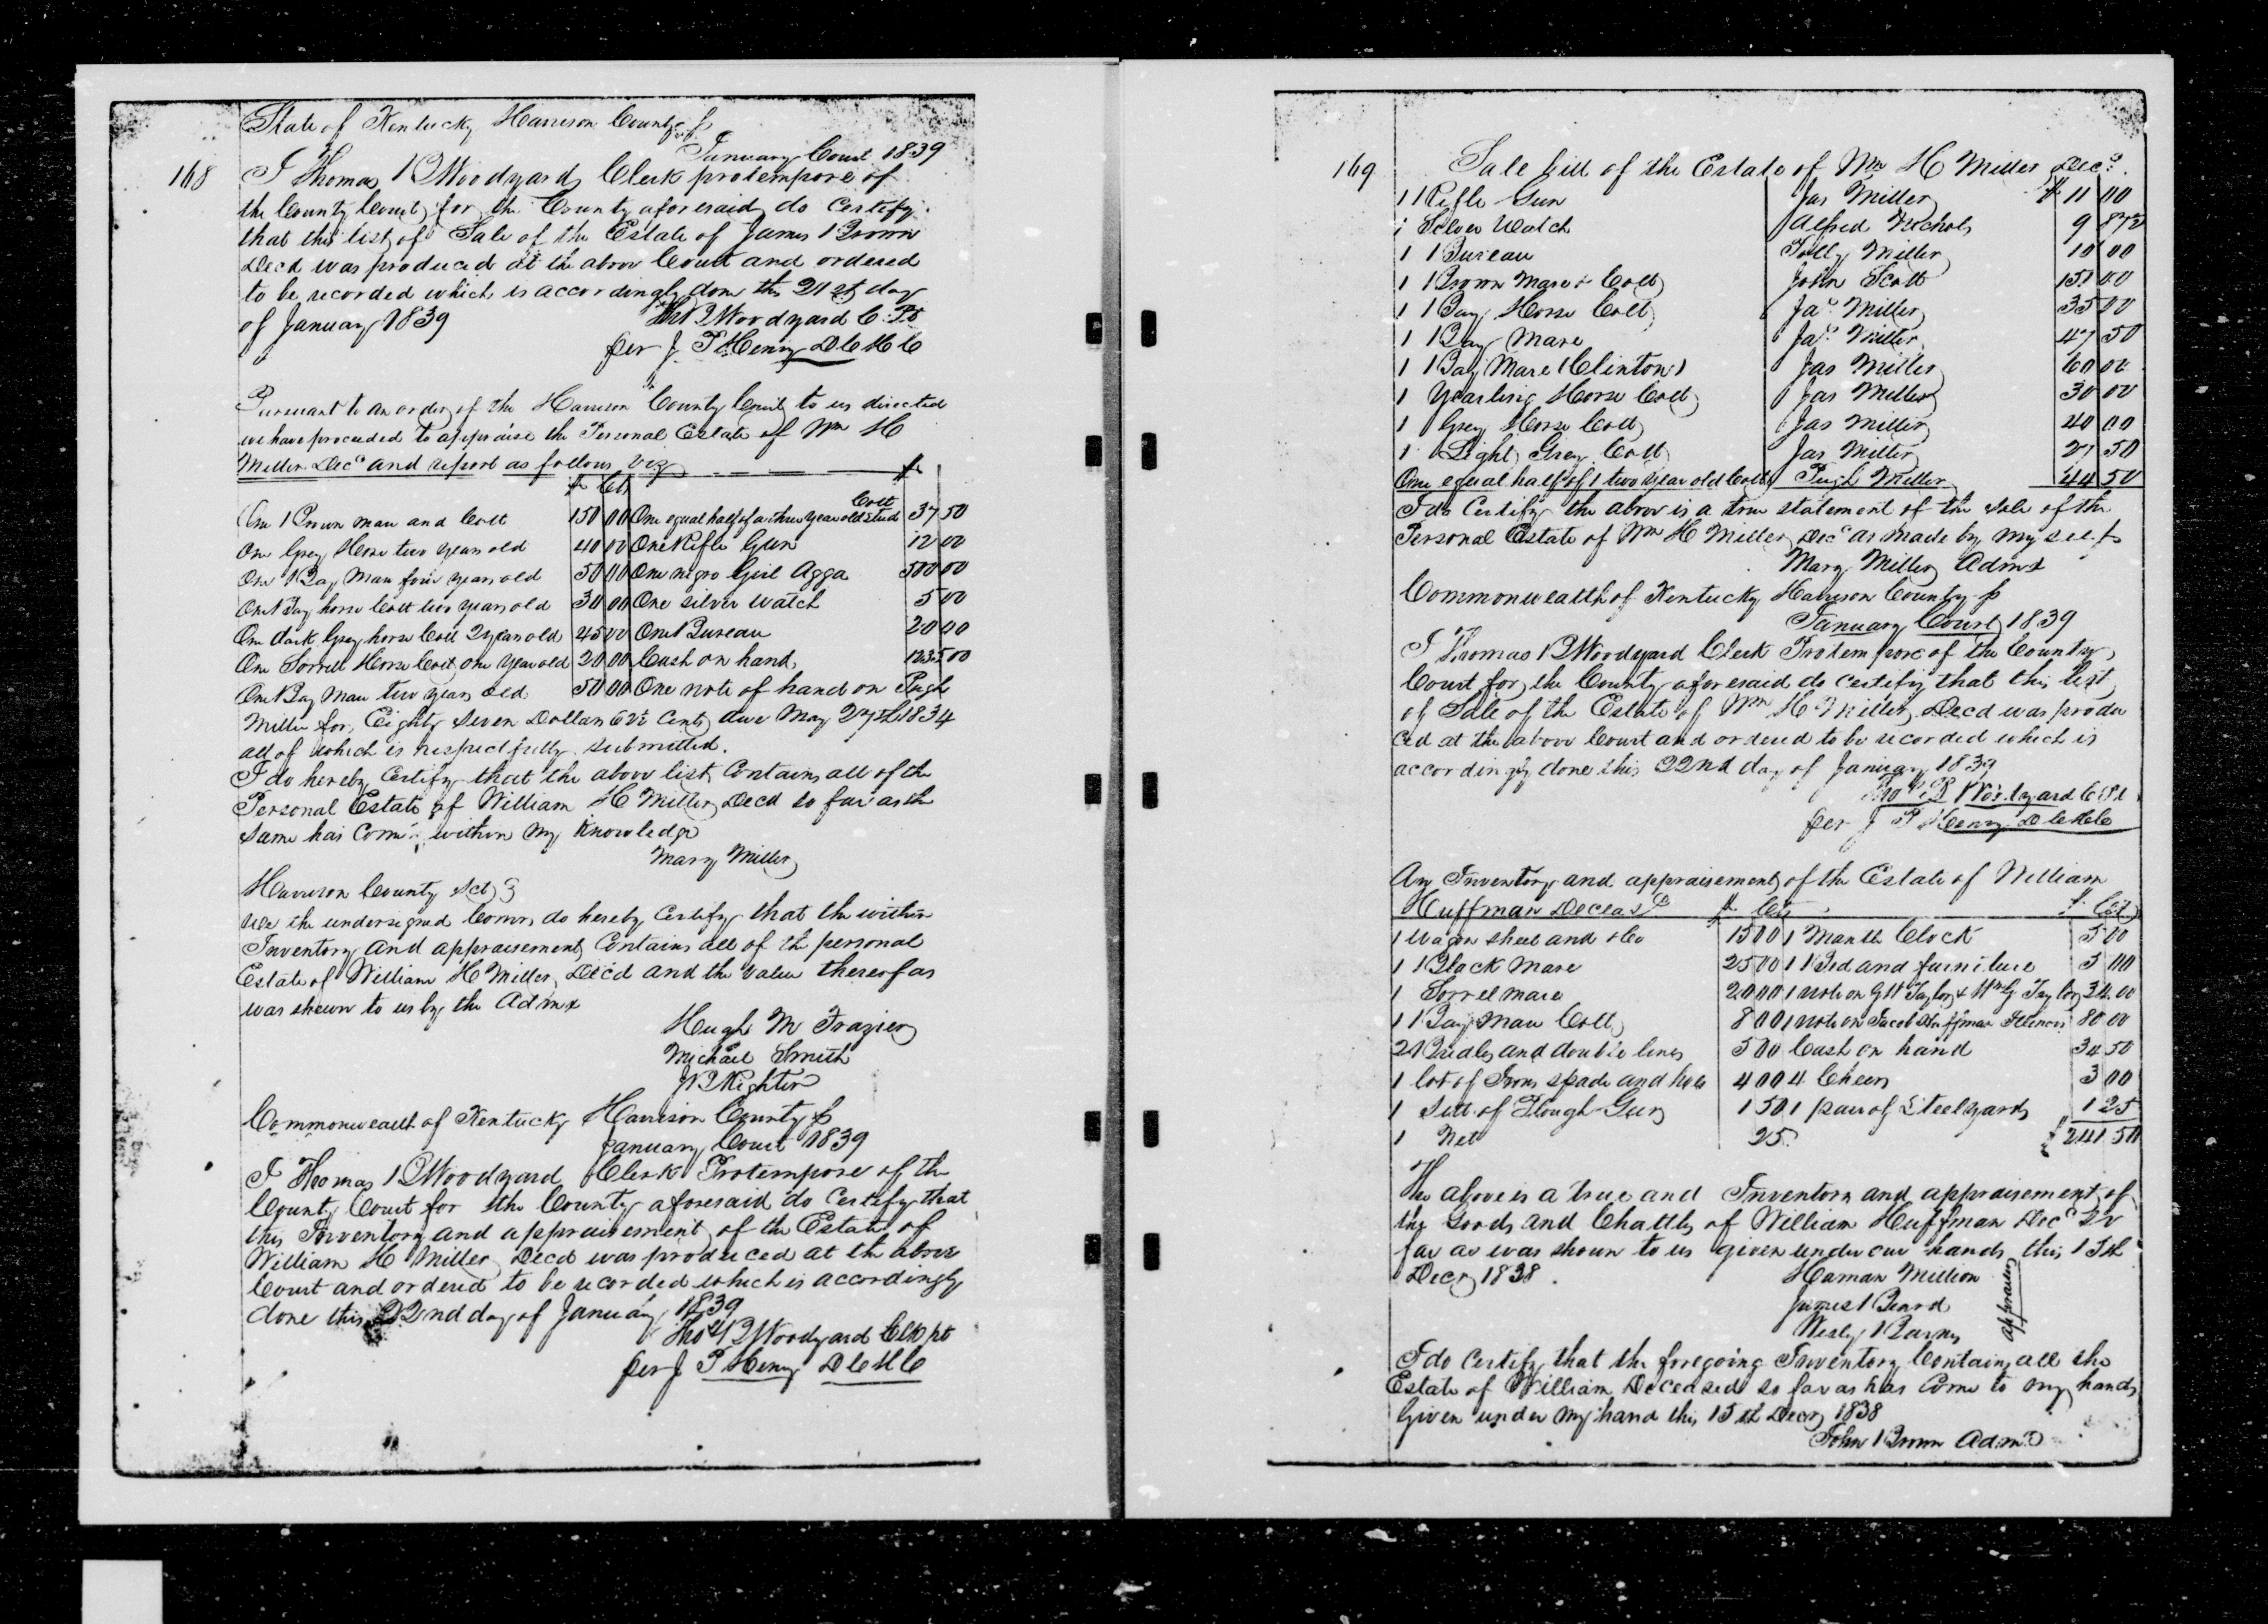 168
State of Kentucky Harrison County ss
January Court 1839
I Thomas B Woodyard Clerk protempore of
the County Court for the County aforesaid do certify
that this list of Sale of the Estate of James Brown
Decd was produced at the above Court and ordered
to be recorded which is accordingly done this 21st day
of January 1839
Thos B Woodyard C. Pt
per J P Henry D C H C
Pursuant to an order of the Harrison County Court to us directed
we have proceeded to appraise the Personal Estate of Wm H
Miller Decd and report as follows viz
$ Cts $
One Brown mare and Colt 150 00 One equal half of a three year old stud Colt 37 50
One Grey Horse two years old 40 00 One Rifle Gun 12 00
One Bay Mare four years old 50 00 One negro Girl Agga 500 00
One Bay horse Colt two years old 30 00 One silver watch 5 00
One dark Grey horse Colt 2 years old 45 00 One Bureau 20 00
One Sorrell Horse Colt one year old 20 00 Cash on hand 123 500
One Bay Mare two years old 50 00 One note of hand on Pugh
Miller for Eighty Seven Dollars 6¼ Cents due May 27th 1834
all of which is respectfully submitted.
I do hereby Certify that the above list Contains all of the
Personal Estate of William H Miller Decd so far as the
same has Come within my knowledge
Mary Miller
Harrison County Sct
We the undersigned Comrs do hereby Certify that the within
Inventory and appraisement Contains all of the personal
Estate of William H Miller Decd and the value thereof as
was shewn to us by the Admx
Hugh M Frazier
Michael Smith
J Righter
Commonwealth of Kentucky Harrison County ss
January Court 1839
I Thomas B Woodyard Clerk Protempore of the
County Court for the County aforesaid do Certify that
this Inventory and appraisement of the Estate of
William H Miller Decd was produced at the above
Court and ordered to be recorded which is accordingly
done this 22nd day of January 1839
Thos B Woodyard Clk pt
per J P Henry D C H C
169
Sale bill of the Estate of Wm H Miller Decd.
1 Rifle Gun Jas Miller $ 11 00
1 Silver Watch Alfred Nichols 9 87½
1 Bureau Polly Miller 10 00
1 Brown Mare & Colt John Scott 151 00
1 Bay Horse Colt Jas Miller 35 00
1 Bay Mare Jas Miller 47 50
1 Bay Mare (Clinton) Jas Miller 60 00
1 Yearling Horse Colt Jas Miller 30 00
1 Grey Horse Colt Jas Miller 40 00
1 Light Grey Colt Jas Miller 27 50
One equal half of 1 two year old Colt Pugh Miller 44 50
I do Certify the above is a true statement of the sale of the
Personal Estate of Wm H Miller Decd as made by my self
Mary Miller Admx
Commonwealth of Kentucky Harrison County ss
January Court 1839
I Thomas B Woodyard Clerk Protempore of the County
Court for the County aforesaid do certify that this list
of Sale of the Estate of Wm H Miller Decd was produ
ced at the above Court and ordered to be recorded which is
accordingly done this 22nd day of January 1839
Thos B Woodyard C Pt
per J P Henry D C H C
An Inventory and appraisement of the Estate of William
Huffman Deceasd $ Cts $ Cts
1 Wagon sheet and &c 15 00 1 Mantle Clock 5 00
1 Black Mare 25 00 1 Bed and furniture 5 00
1 Sorrel mare 20 00 1 note on G W Taylor & Wm G Taylor 34.00
1 Bay Mare Colt 8 00 1 note on Jacob Huffman Illinois 80 00
2 Bridles and double lines 5 00 Cash on hand 34 50
1 lot of Irons spade and hoes 4 00 4 Chears 3 00
1 Sett of Plough Gears 1 50 1 pair of Steelyards 1 25
1 Net 25 $ 241 50
The above is a true and Inventory and appraisement of
the Goods and Chattles of William Huffman Decd so
far as was shown to us given under our hands this 15th
Decr 1838
Haman Million
James Beard
Wesly Barnes
appraisers
I do Certify that the foregoing Inventory Contains all the
Estate of William Deceased so far as has Come to my hands
Given under my hand this 15th Decr 1838
John Brown Admr